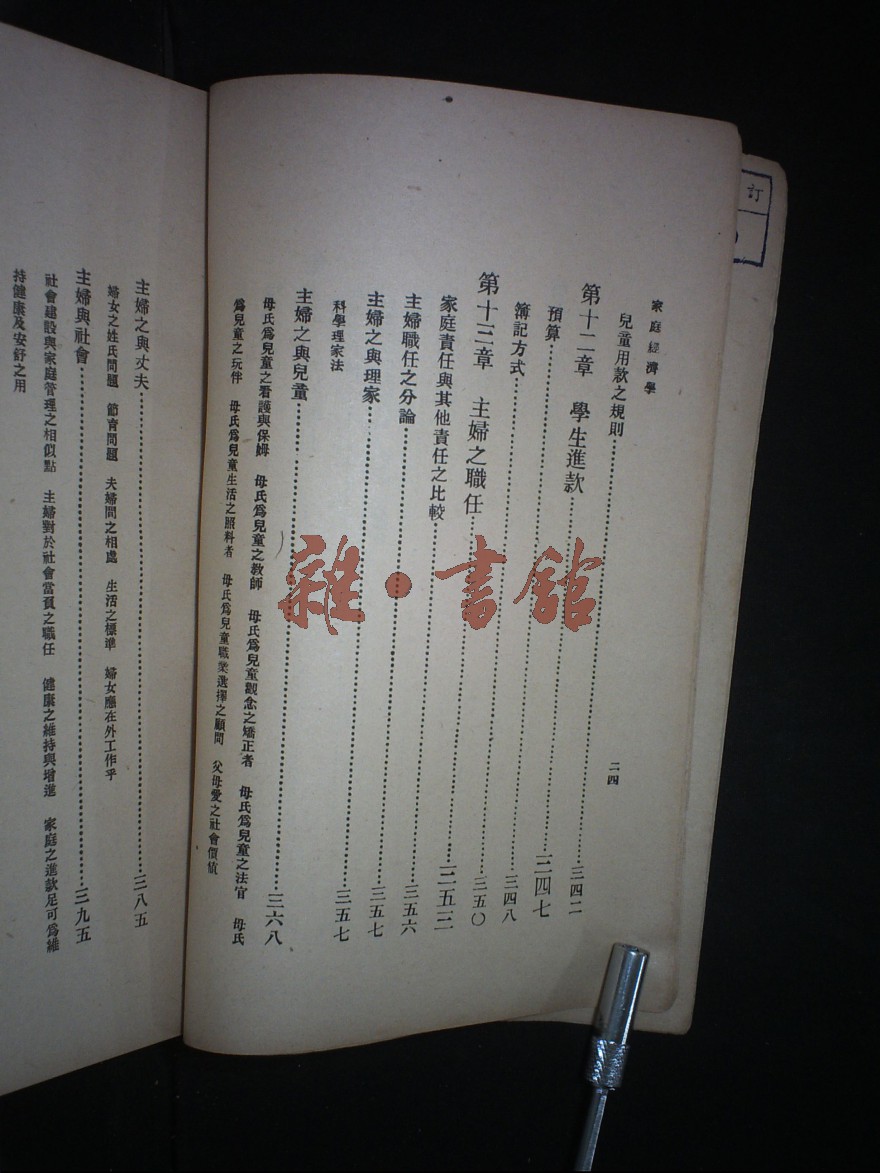 訂
家庭經濟學 二四
兒童用款之規則……三四二
第十二章 學生進款……三四七
預算……三四八
簿記方式……三五〇
第十三章 主婦之職任……三五三
家庭責任與其他責任之比較……三五六
主婦職任之分論……三五七
主婦之與理家……三五七
科學理家法
主婦之與兒童……三六八
母氏爲兒童之看護與保姆 母氏爲兒童之教師 母氏爲兒童觀念之矯正者 母氏爲兒童之法官 母氏
爲兒童之玩伴 母氏爲兒童生活之照料者 母氏爲兒童職業選擇之顧問 父母愛之社會價値
主婦之與丈夫……三八五
婦女之姓氏問題 節育問題 夫婦間之相處 生活之標準 婦女應在外工作乎
主婦與社會……三九五
社會建設與家庭管理之相似點 主婦對於社會當負之職任 健康之維持與增進 家庭之進款足可爲維
持健康及安舒之用
雜·書館